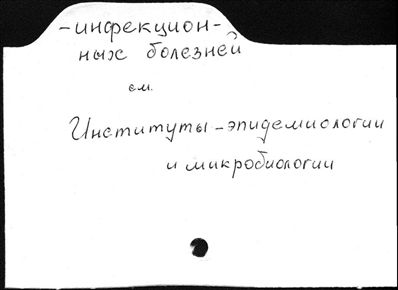 -инфекцион-
ных болезней
см.
Институты-эпидемиологии
и микробиологии